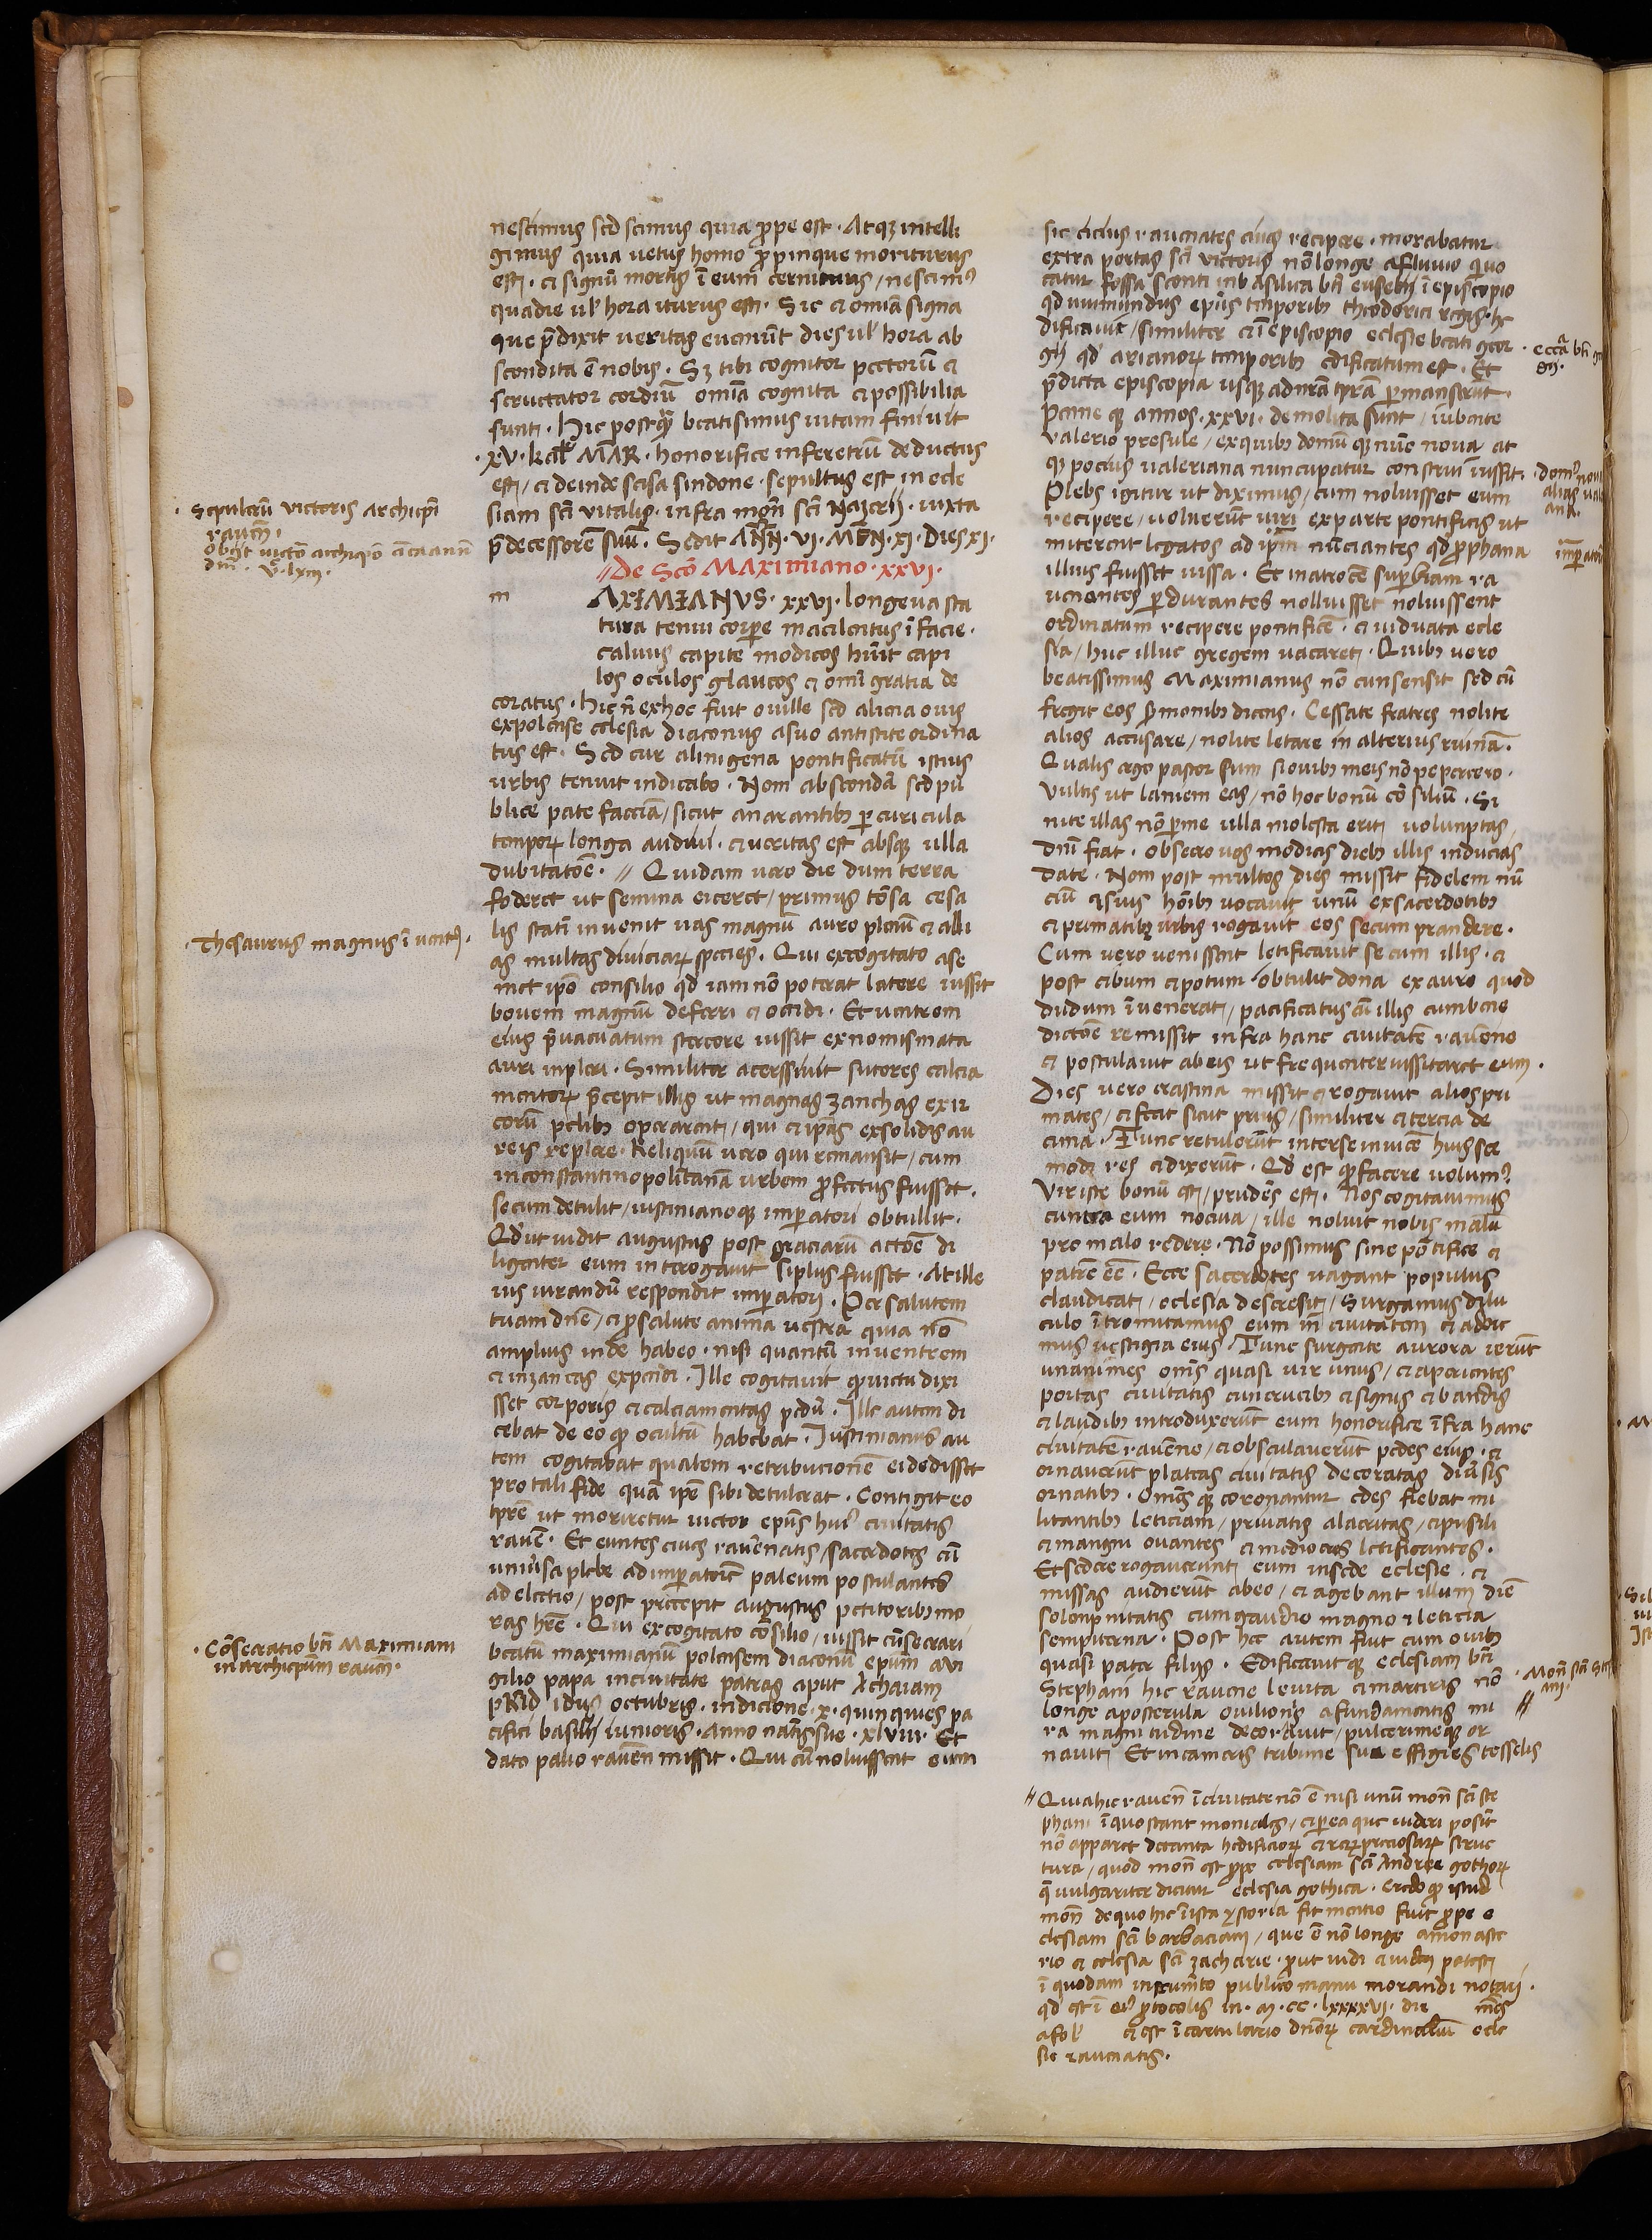 nescimus sed scimus quia ꝓpe est · Atqꝫ intelli
gimus quia uetus homo ꝓpinque moriturus
est · et signũ mortis ĩ eum cernimus / nescimꝰ
quadie ul' hora iturus est · Sic et omĩa signa
que p̃dixit ueritas euenir̃t dies ul' hora ab
scondita ẽ nobis · Sꝫ tibi cognitor pectorũ et
scrutator cordiũ omĩa cognita et possibilia
sunt · Hic postꝙ̃ beatisimus uitam finiuit
· XV · kal' MAR · honorifice inferetrũ deductus
est / et deinde scisa sindone · sepultus est in ecle
siam scĩ vitalis · infra moñ scĩ Nazerij · iuxta
p̃decessorẽ suũ · Sedit AÑÑ · VI · MẼN · XI · DIES XI ·
// De Scõ MAximiano · xxvi ·
m AXIMIANVS · xxvi · longeua sta
tura tenui corꝑe macilentus ĩ facie ·
caluus capite modicos hũit capi
los oculos glaucos et omĩ gratia de
coratus · hic ñ exhoc fuit ouille sed aliena ouis
expolense eclesia diaconus asuo antistite ordina
tus est · Sed cur alinigena pontificatũ istius
urbis tenuit indicabo · Nom abscondã sed pu
blice pate faciã / sicut anarantibꝫ ꝑ curicula
tempoꝝ longa audiui · et ueritas est absqꝫ ulla
dubitatõe · // Quidam uero die dum terra
foderet ut semina eiceret / primus tõsa cesa
lis statĩ inuenit uas magnũ auro plenũ et alli
as multas diuiciaꝝ species · Qui excogitato ase
met ipõ consilio qd̃ iam nõ poterat latere iussit
bouem magnũ deferri et occidi · Et uentrem
eius p̃uacuatum stercore iussit exnomismata
auri inpleri · Similiter acerssiuit sutores calcia
mentoꝝ p̃cepit illis ut magnas zanchas exir
corũ pelibꝫ operarent / qui et ipãs exsolidis au
reis replere · Reliquũ uero qui remansit / cum
inconstantinopolitanã urbem ꝓfectus fuisset ·
secum detulit / iustinianoqꝫ imꝑatori obtullit ·
Qd̃ ut uidit augustus post graciarũ actõe di
ligenter eum interogauit siplus fuisset · At ille
ius iurandũ respondit imꝑatori · Per salutem
tuam dñe / et ꝓ salute anima uestra quia nõ
amplius inde habeo · nisi quantũ inuentrem
et inzancas expendi · Ille cogitauit ꝙ uictu dixi
sset corporis et calciamentas pedũ · Ille autem di
cebat de eo ꝙ ocultũ habebat · Iustinianus au
tem cogitabat qualem retribucionẽ ei dedisset
pro tali fide quã ipẽ sibi detulerat · Contigit eo
tp̃re ut moriretur uictor ep̃us huiꝰ ciuitatis
rauẽ · Et euntes ciues rauẽnatis / sacerdotes cũ
uniũsa plebe ad imꝑatorẽ paleum postulantes
ad electio / post precepit augustus petitoribꝫ mo
ras hr̃e · Qui excogitato cõsilio / iussit cũsecrari
beatũ maximianũ polensem diaconũ ep̃um aui
gilio papa inciuitate patras aput Achaiam
pRid idus octubris · indicione · x · quinquies pa
cifici basilij iunioris · Anno natiĩs sue · xlviii · Et
dato palio rauẽn missit · Qui cũ noluissent eum
sic eidus rauenates ciues recipere · morabatur
extra portas scĩ victoris nõ longe a fluuio quo
catur fossa sconti inb asilica bt̃i eusebij ĩ episcopio
qd̃ uuimundus ep̃us temporibꝫ theodorici regis · he
dificauit / similiter et ĩ episcopio eclesie beati geor
gij qd̃ arianoꝝ temporibꝫ edificatum est · Et
p̃dicta episcopia usqꝫ ad nr̃ã tp̃rã ꝑmanserũt ·
Pene qꝫ annos · xxvi · demolita sunt / iubente
valerio presule / exquibꝫ domũ qꝫ nũc noua at
qꝫ pocius ualeriana nuncupatur construĩ iussit ·
Plebs igitur ut diximus / cum noluisset eum
recipere / uoluerũt uiri exparte pontificis ut
miterent legatos ad ip̃m nũciantes qd̃ ꝓphana
illius fuisset iussa · Et inatrocẽ suꝑbiam ra
uenantes ꝑdurantes nolluisset noluissent
ordinatum recipere pontificẽ · et uiduata ecle
sia / huc illuc gregem uacaret · Quibꝫ uero
beatissimus Maximianus nõ cunsensit sed cũ
fregit eos ꝑmonibꝫ dicens · Cessate fratres nolite
alios accusare / nolite letare in alterius ruinã ·
Qualis ergo pastor sum si ouibꝫ meis nõ pepercero ·
Vultis ut laniem eas / nõ hoc bonũ cõsiliũ · Si
nite illas nõ ꝑme ulla molesta erit uolunptas /
dñi fiat · obsecro uos modicas diebꝫ illis inducias
date · Nom post multos dies missit fidelem nũ
ciũ et suis hõibꝫ uocauit unũ exsacerdotibꝫ
et primatibꝫ urbis rogauit eos secum prandere ·
Cum uero uenissent letificauit se cum illis · et
post cibum et potum obtulit dona ex auro quod
dudum ĩuenerat / pacificatus cũ illis cumbene
dictõe remissit infra hanc ciuitatẽ rauẽne
et postulauit abeis ut frequenter uissitaret eum ·
Dies uero crastina missit et rogauit alios pri
mates / et fecit sicut prius / similiter et tercia de
cima · Tunc retulerũt interse inuicẽ huisce
modi res et dixerũt · Qd̃ est ꝙ facere uolumꝰ
Vir iste bonũ est / prudẽs est · Nos cogitauimus
cuntra eum nociua / ille noluit nobis malũ
pro malo redere · Nõ possimus sine põtifice et
patrẽ eẽ · Ecce sacerdotes uagant populus
claudicat / eclesia descresit / Surgamus dilu
culo ĩtromitamus eum in ciuitatem et adore
mus uestigia eius / Tunc surgente aurora ierũt
unanimes omĩs quasi uir unus / et aperientes
portas ciuitatis cuncrucibꝫ et signis et bandis
et laudibꝫ introduxerũt eum honorifice ĩfra hanc
ciuitatẽ rauẽne / et obsculauerũt pedes eius · et
ornauerũt plateas ciuitatis decoratas diũsis
ornatibꝫ · Omĩs qꝫ coronantur edes fiebat mi
litantibꝫ leticiam / priuatis alacritas / et pusili
et mangni ouantes et mediocres letificantes ·
Et sedere rogauerunt eum insede eclesie · et
missas audierũt abeo / et agebant illum diẽ
solonpnitatis cum gaudio magno et leticia
sempiterna · Post hec autem fuit cum ouibꝫ
quasi pater filijs · Edificauit qꝫ eclesiam bt̃i
Stephani hic rauene leuita et martiris nõ
longe aposterula ouilionis a fundamentis mi
ra magnitudine decorauit / pulcerimeqꝫ or
nauit Et incameris tribune sua effigies tesselis
// Quia hic rauẽn ĩ ciuitate nõ ẽ nisi unũ moñ scĩ ste
phani ĩ quo stant moniales / et ꝑ ea que uideri posũt
nõ apparet detanta hedificioꝝ et reꝝ preciosaꝝ struc
tura / quod moñ est ꝓpe eclesiam scĩ Andree gothoꝝ
q̃ uulgariter dicitur eclesia gothica · Credo ꝙ istud
moñ de quo hic ĩ ista ystoria fit mentio fuit ꝓpe e
clesiam scĩ barbaciani / que ẽ nõ longe amonaste
rio et eclesia scĩ zacharie · prout uidi et uideri potest
ĩ quodam instrumẽto publico manu morandi notarii ·
qd̃ est ĩ eiꝰ ꝓtocolis in · m · cc · lxxxxvi · die mẽs
a fol' et est ĩ cartulario dñoꝝ cardinaliũ ecle
sie rauenatis ·
· Sepulcrũ victoris Archiep̃i
raueñ ·
obijt uictõ archiep̃õ circa anñ
dñi · vᶜ · lxiij ·
· Thesaurus magnus ĩuentꝰ ·
· Cõsecratio bt̃i Maximiani
in archiep̃um raueñ ·
· eccã bt̃i ge
gij ·
· domꝰ noua
alias uale
ana ·
imꝑatori
· Moñ scĩ Ste
ani ·